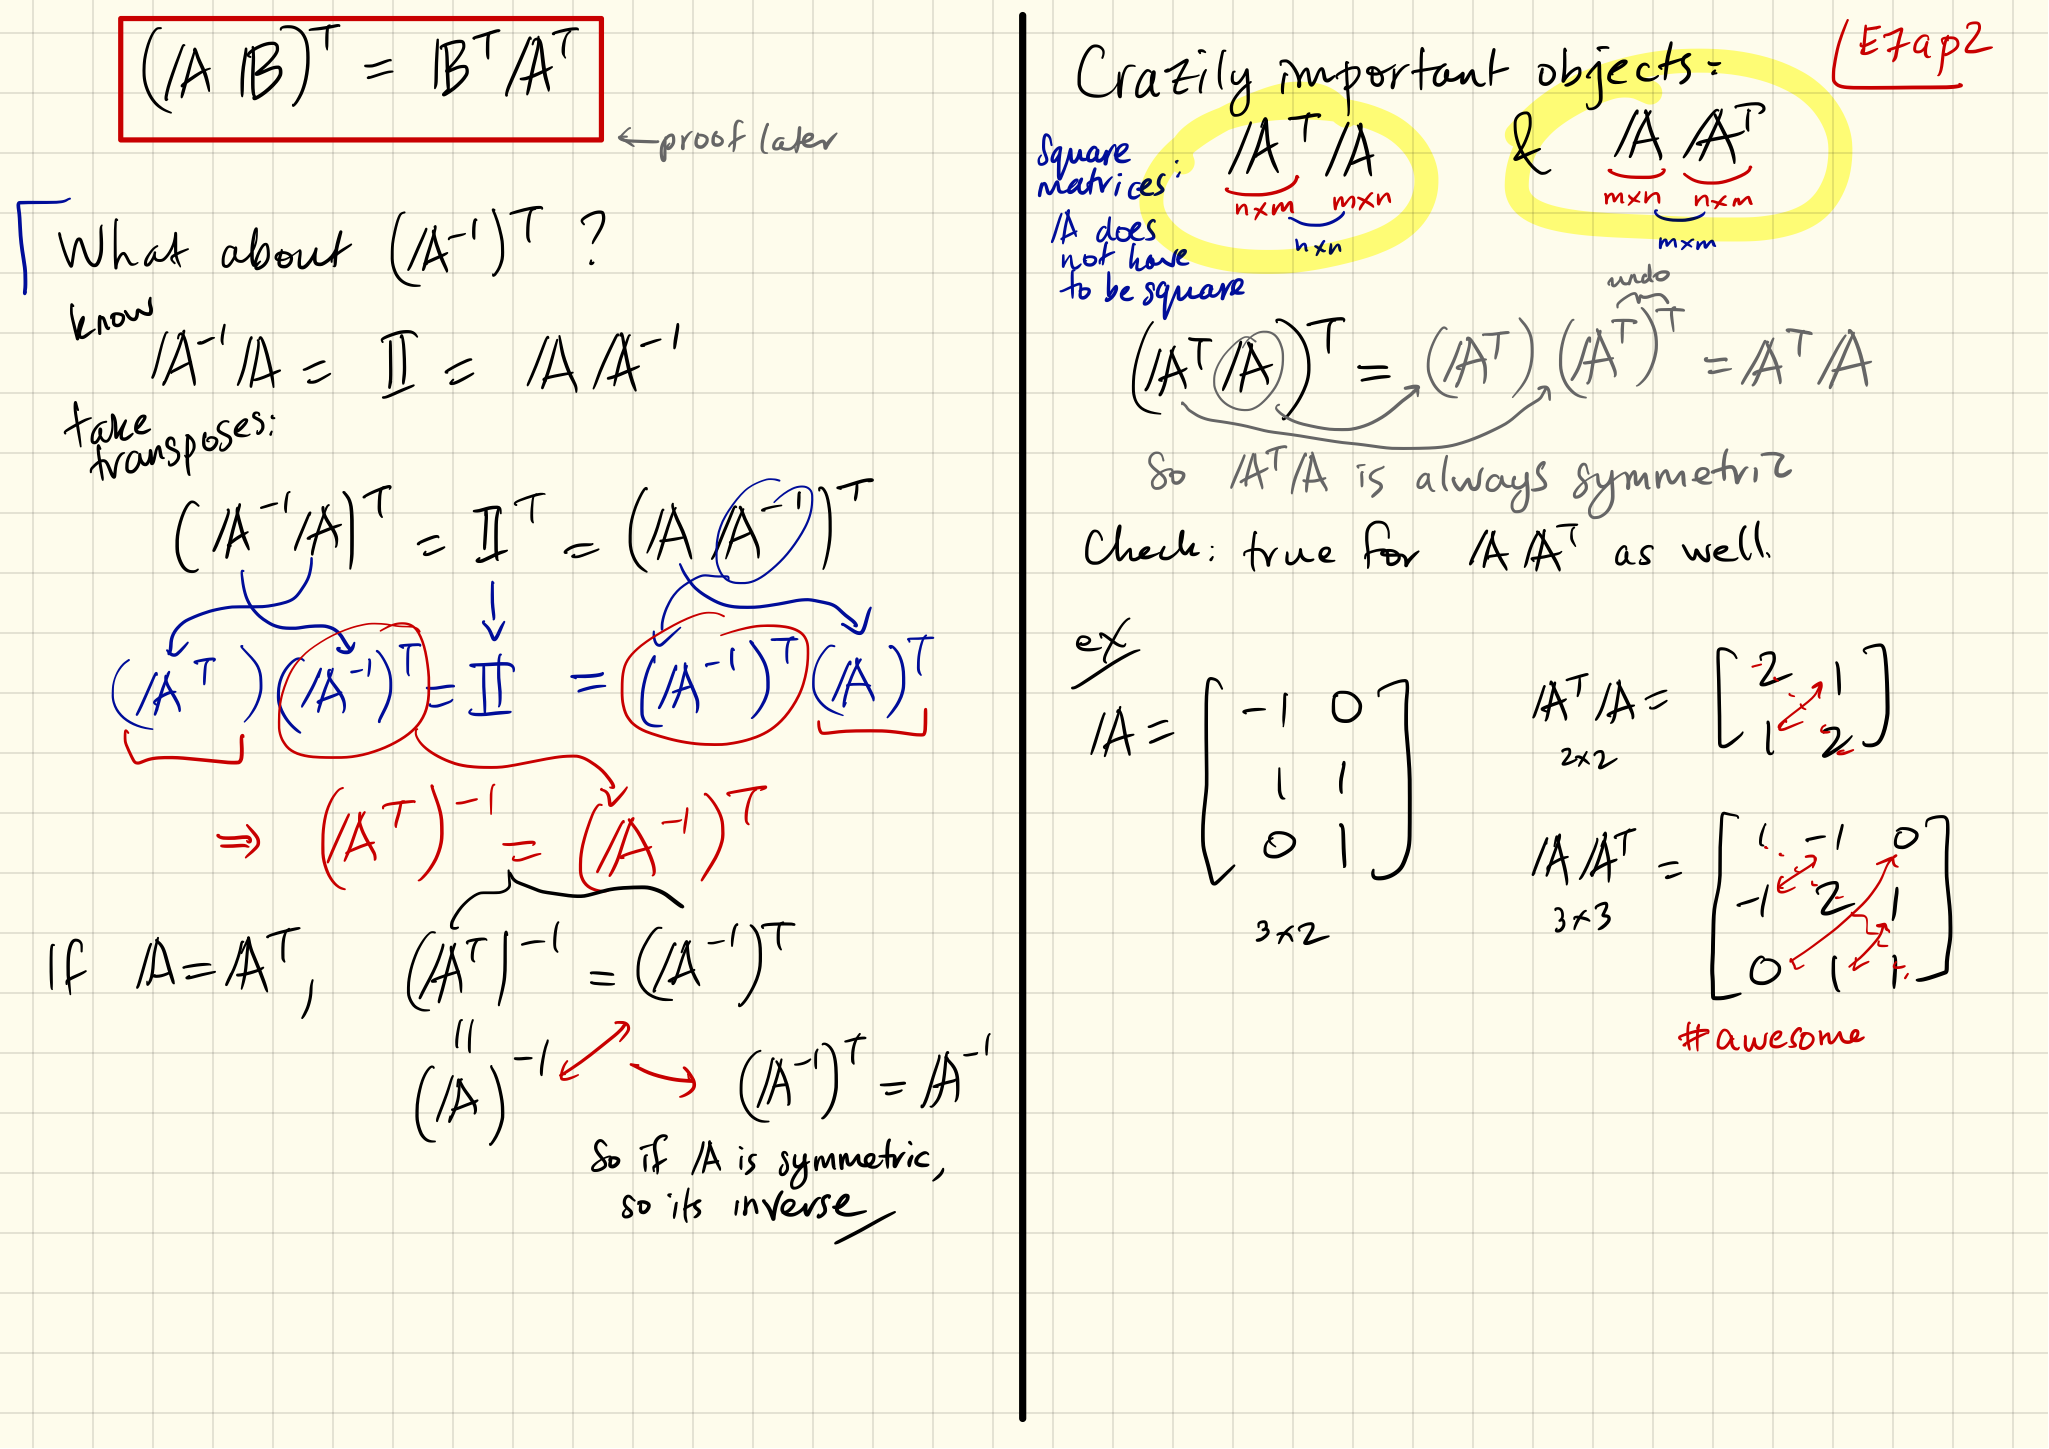 (𝔸 𝔹)ᵀ = 𝔹ᵀ 𝔸ᵀ
← proof later
What about (𝔸⁻¹)ᵀ ?
know
𝔸⁻¹ 𝔸 = 𝕀 = 𝔸 𝔸⁻¹
take
transposes:
(𝔸⁻¹ 𝔸)ᵀ = 𝕀ᵀ = (𝔸 𝔸⁻¹)ᵀ
(𝔸ᵀ) (𝔸⁻¹)ᵀ = 𝕀 = (𝔸⁻¹)ᵀ (𝔸)ᵀ
⇒ (𝔸ᵀ)⁻¹ = (𝔸⁻¹)ᵀ
If 𝔸 = 𝔸ᵀ, (𝔸ᵀ)⁻¹ = (𝔸⁻¹)ᵀ
=
(𝔸)⁻¹ (𝔸⁻¹)ᵀ = 𝔸⁻¹
So if 𝔸 is symmetric,
so its inverse
E7ap2
Crazily important objects:
𝔸ᵀ 𝔸 & 𝔸 𝔸ᵀ
n×m m×n m×n n×m
n×n m×m
Square
matrices:
𝔸 does
not have
to be square
undo
(𝔸ᵀ 𝔸)ᵀ = (𝔸ᵀ) (𝔸ᵀ)ᵀ = 𝔸ᵀ 𝔸
So 𝔸ᵀ 𝔸 is always symmetric
Check: true for 𝔸 𝔸ᵀ as well.
ex
𝔸 =
-1 0
1 1
0 1
3×2
𝔸ᵀ 𝔸 =
2×2
2 1
1 2
𝔸 𝔸ᵀ =
3×3
1 -1 0
-1 2 1
0 1 1
#awesome